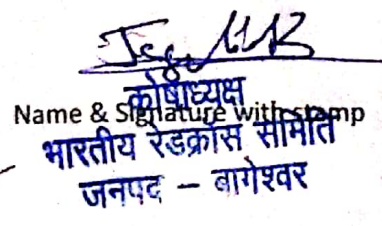 कोषाध्यक्ष
Name & Signature with stamp
भारतीय रेडक्रॉस समिति
जनपद – बागेश्वर